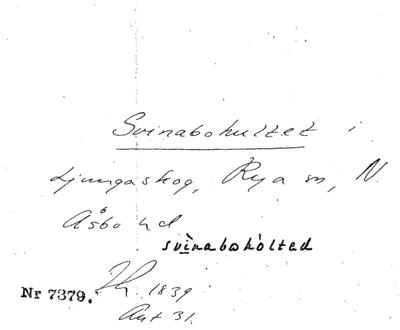 Svinabohultet i
Ljungaskog, Rya sn, N.
Åsbo hd
svinabohòlted
Nr 7379. 1839
Akt 31.